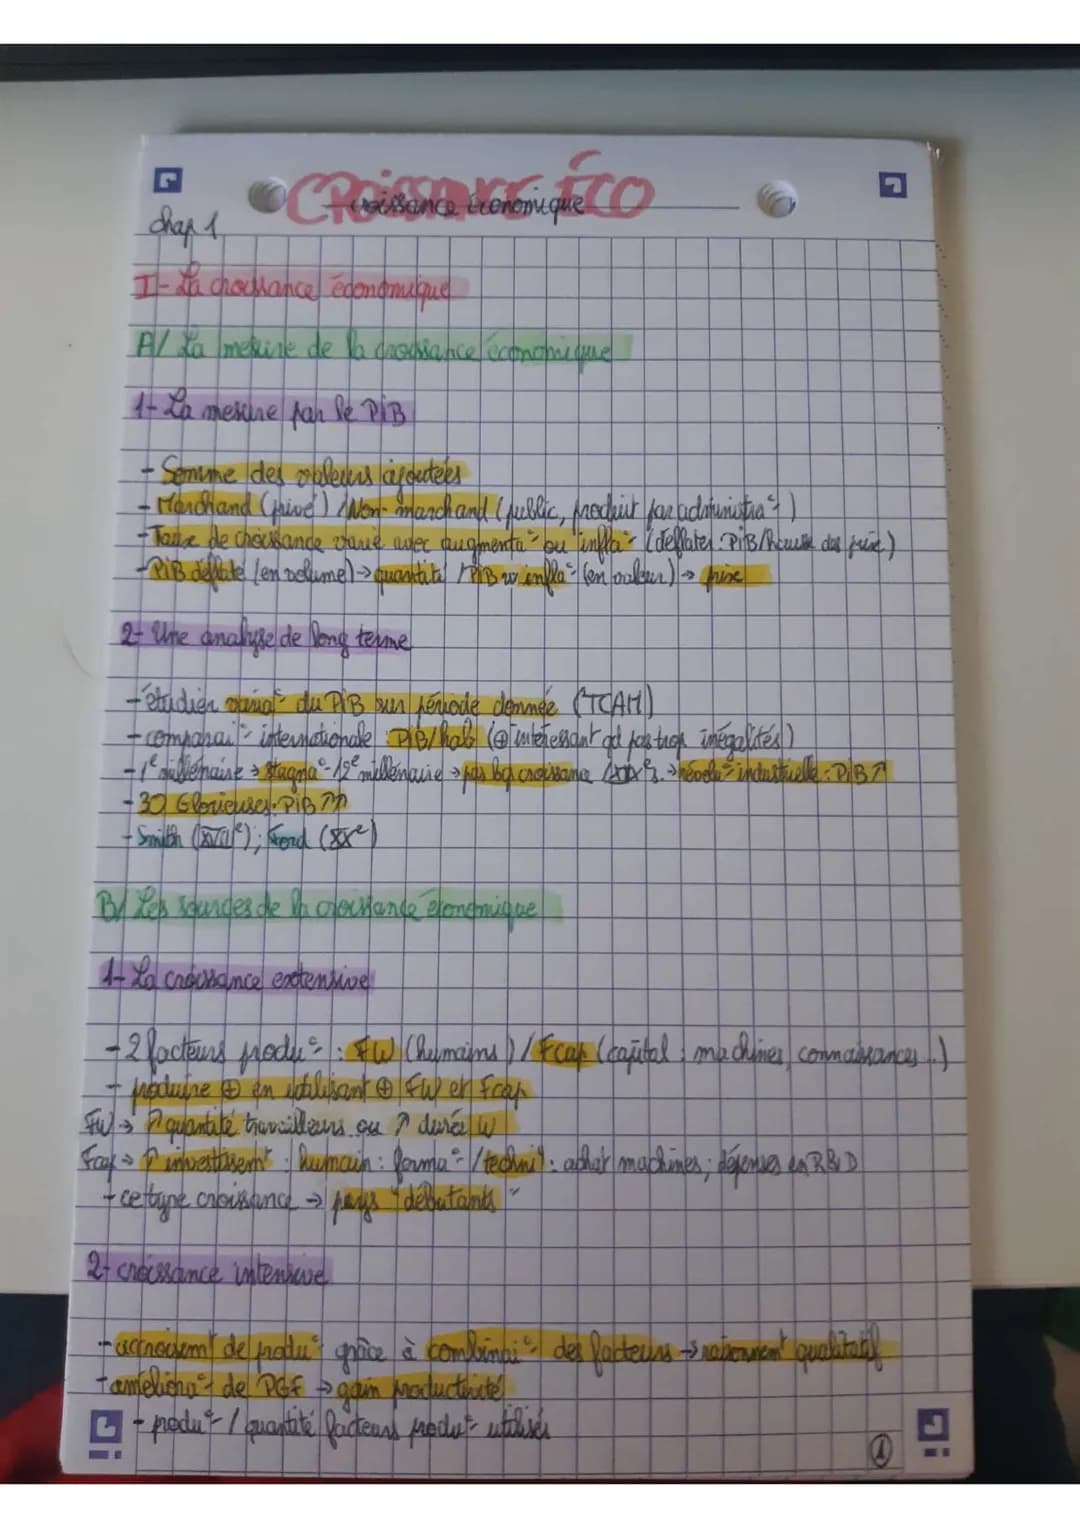 CROISSANCE ÉCO
Croissance économique
Chap 1
I- La croissance économique
A/ La mesure de la croissance économique
1- La mesure par le PiB
- Somme des valeurs ajoutées
- Marchand (privé) / Non-marchand (public, produit par administra°)
- Taux de croissance varie avec augmenta° ou infla° (déflater: PiB/hausse des prix)
- PiB déflaté (en volume) → quantité / PiB infla° (en valeur) → prix
2- Une analyse de long terme
- étudier varia° du PiB sur période donnée (TCAM)
- comparai° internationale : PiB/hab (⊕ intéressant qd pas trop inégalités)
- 1e millénaire → stagna° - 2e millénaire → pas bcp croissance / XIXe s. → révolu° industrielle : PiB ↗
- 30 Glorieuses : PiB ↗↗
- Smith (XVIIIe) ; Ford (XXe)
B/ Les sources de la croissance économique
1- La croissance extensive
- 2 facteurs produ° : FW (humains) / Fcap (capital : machines, connaissances...)
- produire ⊕ en utilisant ⊕ FW et Fcap
FW → ↗ quantité travailleurs ou ↗ durée W
Fcap → ↗ investissemt : humain : forma° / techni° : achat machines ; dépenses en R&D
- ce type croissance → pays "débutants"
2- croissance intensive
- accroissemt de produ° grâce à combinai° des facteurs → raisonnemt qualitatif
- améliora° de PGF → gain productivité
- produ° / quantité facteurs produ° utilisés
1